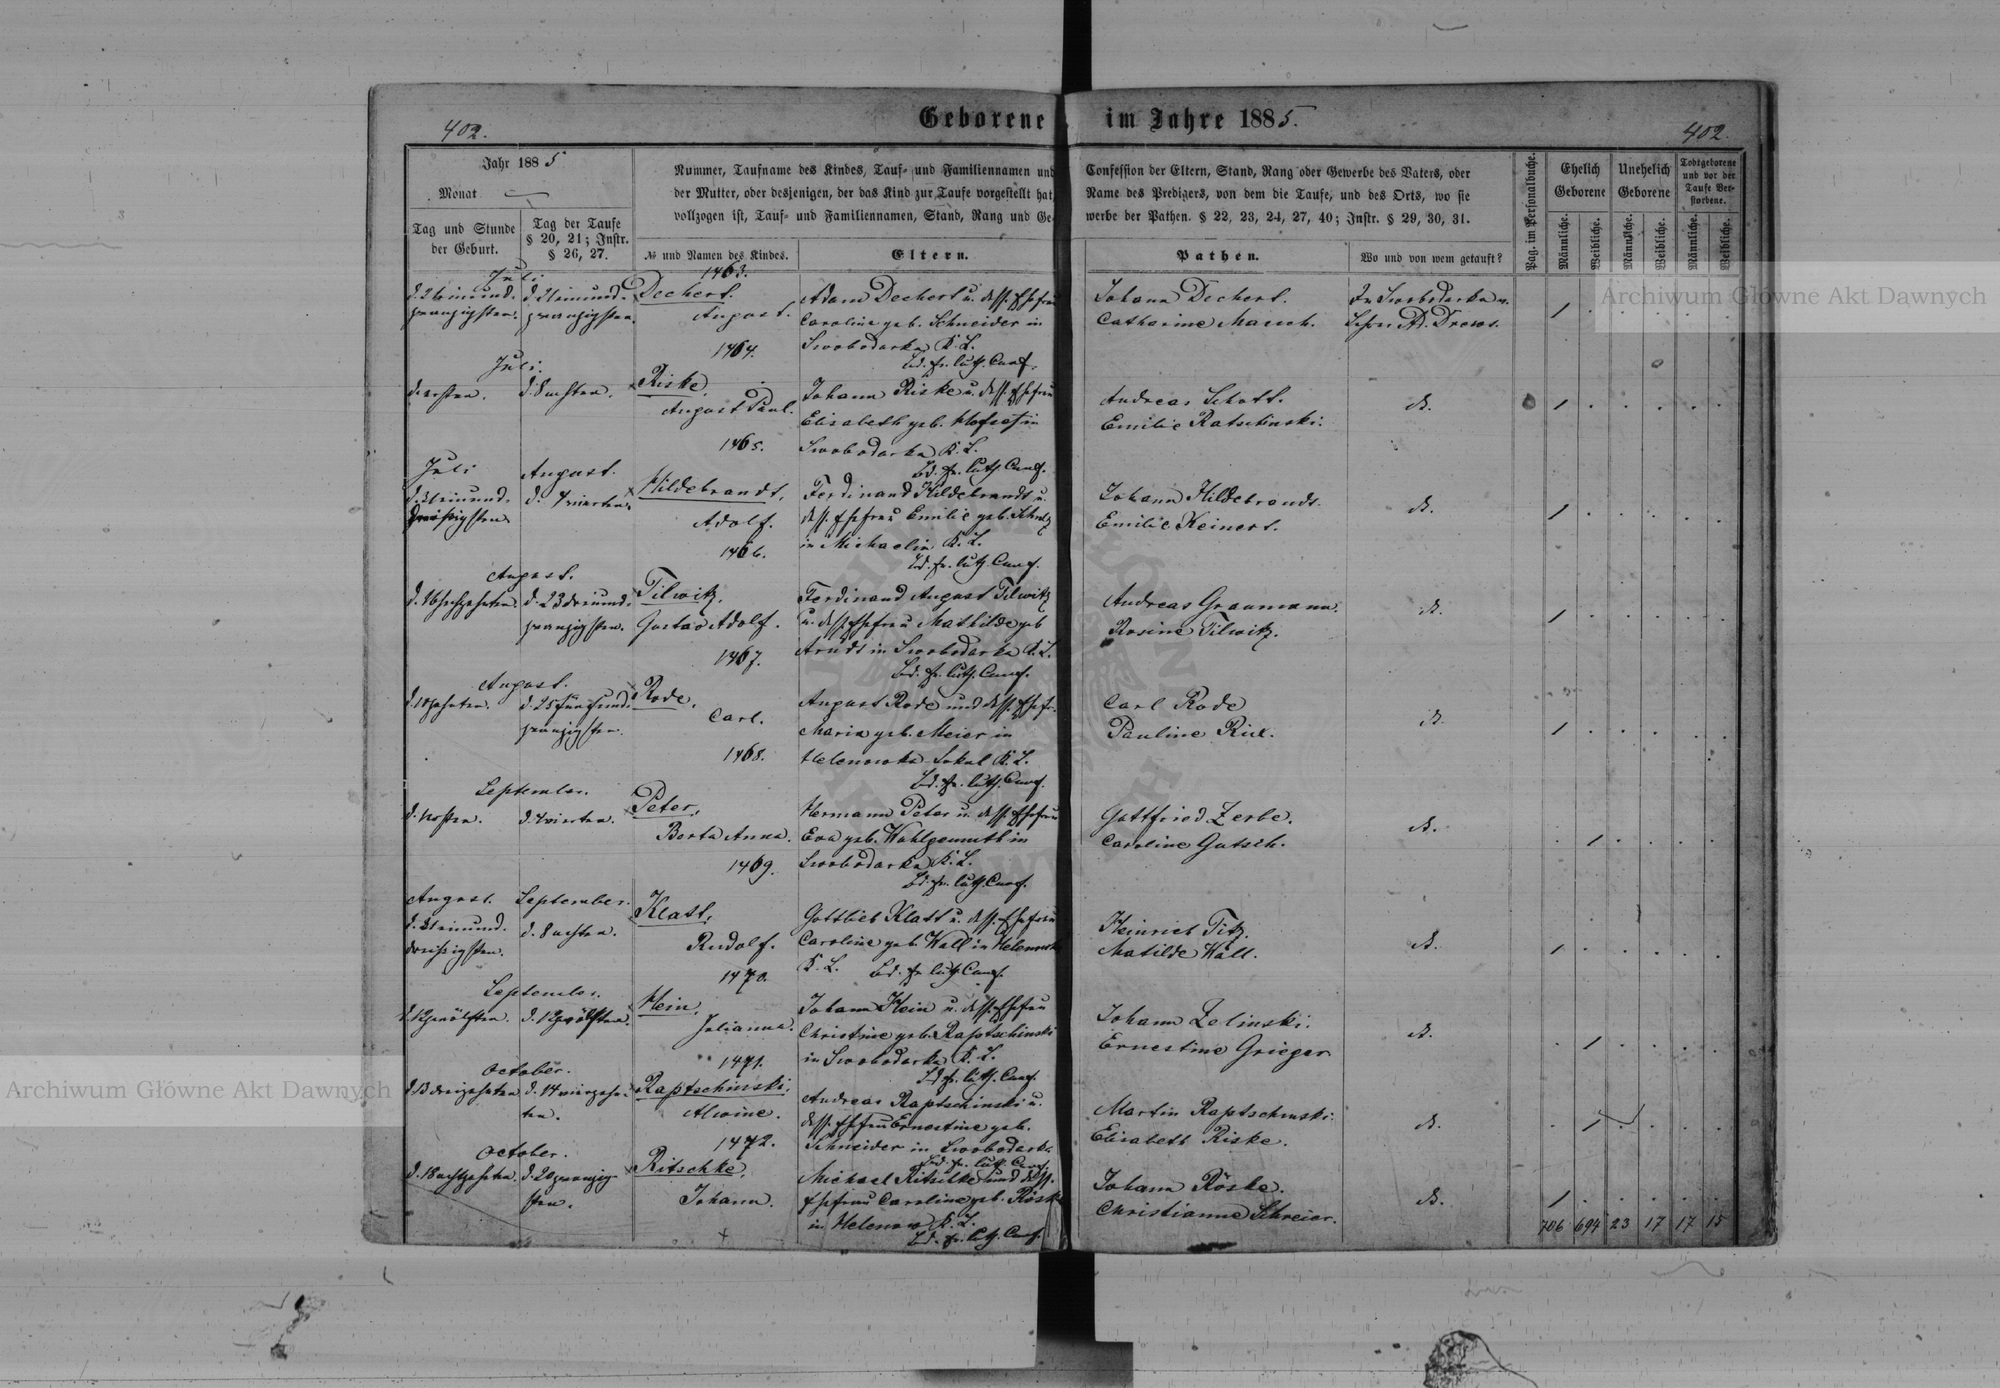 402.
Geborene im Jahre 1885.
402
Jahr 1885
Monat
Tag und Stunde der Geburt.
Tag der Taufe § 20, 21; Instr. § 26, 27.
Nummer, Taufname des Kindes, Tauf- und Familiennamen und
der Mutter, oder desjenigen, der das Kind zur Taufe vorgestellt hat,
vollzogen ist, Tauf- und Familiennamen, Stand, Rang und Ge-
№ und Namen des Kindes.
Eltern.
Confession der Eltern, Stand, Rang oder Gewerbe des Vaters, oder
Name des Predigers, von dem die Taufe, und des Orts, wo sie
werbe der Pathen. § 22, 23, 24, 27, 40; Instr. § 29, 30, 31.
Pathen.
Wo und von wem getauft?
Pag. im Personalbuche.
Ehelich Geborene
Unehelich Geborene
Todtgeborene und vor der Taufe Verstorbene.
Männliche.
Weibliche.
Männliche.
Weibliche.
Männliche.
Weibliche.
Juli.
d. 21 einund-
zwanzigsten.
d. 21 einund-
zwanzigsten.
1463.
Dechert.
August.
Adam Dechert u. dess. Ehefrau
Caroline geb. Schneider in
Swobodarka K. L.
Bd. ev. luth. Conf.
Johann Dechert.
Catharine Marsch.
In Swobodarka v.
Ad. Drews.
1
Juli.
d. ersten.
d. 8 achten.
1464.
Riske.
August Paul.
Johann Riske u. dess. Ehefrau
Elisabeth geb. in
Swobodarka K. L.
Bd. ev. luth. Conf.
Andreas Schott.
Emilie Ratschinski.
d.
1
Juli
d. 31 einund-
dreißigsten
August.
d. 4 vierten.
1465.
Hildebrandt,
Adolf.
Ferdinand Hildebrandt u.
dess. Ehefrau Emilie geb.
in Michaelin K. L.
Bd. ev. luth. Conf.
Johann Hildebrandt.
Emilie Reinert.
d.
1
August.
d. 16 sechzehnten.
d. 23 dreiund-
zwanzigsten.
1466.
Tilwitz.
Gustav Adolf.
Ferdinand August Tilwitz
u. dess. Ehefrau Mathilde geb
Arndt in Swobodarka K. L.
Bd. ev. luth. Conf.
Andreas Graumann.
Rosine Tilwitz.
d.
1
August.
d. 10 zehnten.
d. 25 fünfund-
zwanzigsten.
1467.
Rode,
Carl.
August Rode und dess. Ehefr.
Maria geb. Meier in
Helenowka Sokul K. L.
Bd. ev. luth. Conf.
Carl Rode
Pauline
d.
1
September.
d. 1 ersten.
d. 4 vierten.
1468.
Peter,
Berta Anna.
Hermann Peter u. dess. Ehefrau
Eva geb. Wohlgemuth in
Swobodarka K. L.
Bd. ev. luth. Conf.
Gottfried Zerbe.
Caroline Gatsch.
d.
1
August.
d. 31 einund-
dreißigsten.
September.
d. 8 achten.
1469.
Klatt,
Rudolf.
Gottlieb Klatt u. dess. Ehefrau
Caroline geb. Wall in Helenowka
K. L. Bd. ev. luth. Conf.
Heinrich Titz.
Matilde Wall.
d.
1
September.
d. 12 zwölften.
d. 12 zwölften.
1470.
Hein,
Julianna.
Johann Hein u. dess. Ehefrau
Christine geb. Raptschinski
in Swobodarka K. L.
Bd. ev. luth. Conf.
Johann Zelinski.
Ernestine Grieger
d.
1
October.
d. 13 dreizehnten
d. 14 vierzehn-
ten.
1471.
Raptschinski,
Alwine.
Andreas Raptschinski u.
dess. Ehefrau Ernestine geb.
Schneider in Swobodarka
Bd. ev. luth. Conf.
Martin Raptschinski.
Elisabeth Riske.
d.
1
October.
d. 18 achtzehnten.
d. 20 zwanzig-
sten.
1472.
Ritschke,
Johann.
Michael Ritschke und dess.
Ehefrau Caroline geb. Röske
in Helenow K. L.
Bd. ev. luth. Conf.
Johann Röske.
Christianne Schreier.
d.
1
706 694 23 17 17 15
Archiwum Główne Akt Dawnych
Archiwum Główne Akt Dawnych